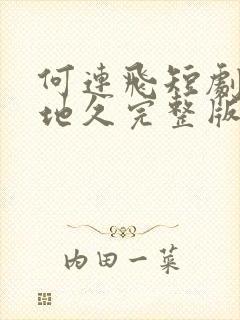 何連飛短劇
地久完整版
内田一菜